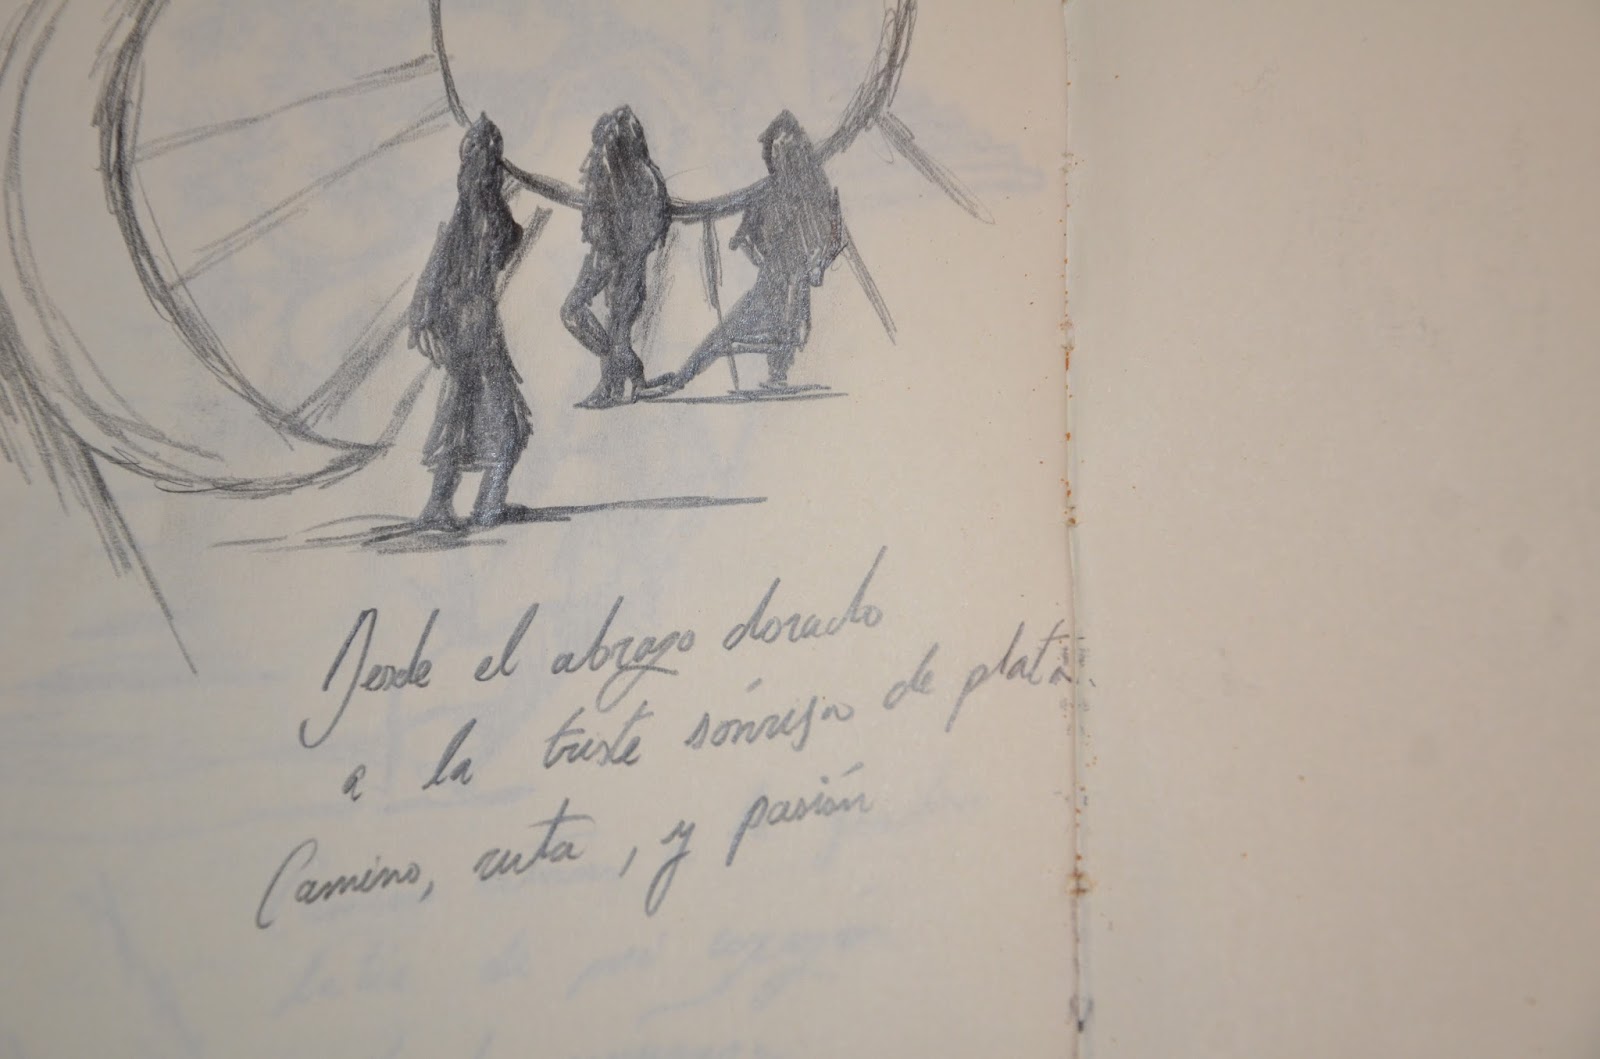 Desde el abrazo dorado
a la triste sónrisa de plata.
Camino, ruta, y pasión